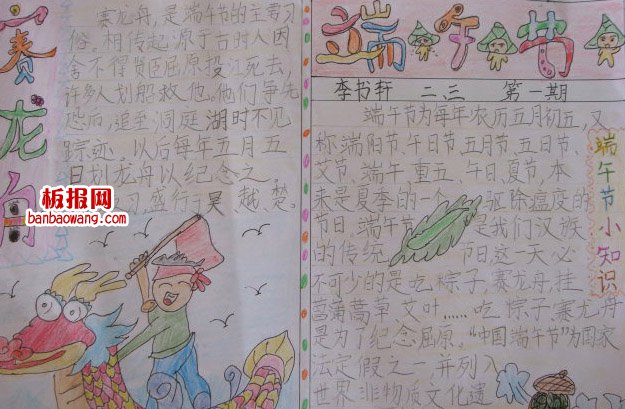 赛龙舟
赛龙舟,是端午节的主要习
俗。相传起源于古时人因
舍不得贤臣屈原投江死去,
许多人划船救他。他们争先
恐后,追至洞庭湖时不见
踪迹。以后每年五月五
日划龙舟以纪念之。
习,盛行于吴、越、楚。
板报网
banbaowang.com
端午节
李书轩 二、三 第一期
端午节为每年农历五月初五,又
称端阳节、午日节、五月节、五日节、
艾节、端午、重五、午日、夏节,本
来是夏季的一个驱除瘟疫的
节日,端午节是我们汉族
的传统节日,这一天必
不可少的是吃粽子,赛龙舟,挂
菖蒲、蒿草、艾叶……吃粽子,赛龙舟
是为了纪念屈原。“中国端午节”为国家
法定假之一并列入
世界非物质文化遗
端午节小知识